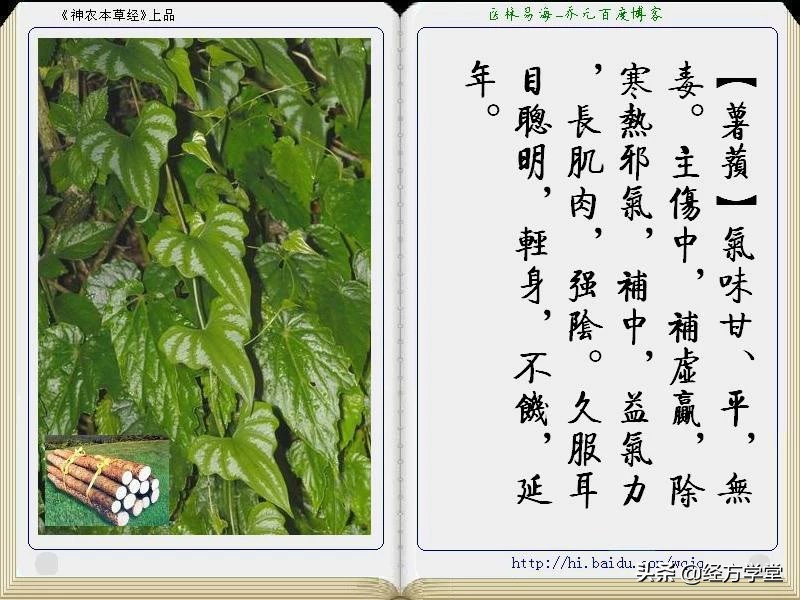 《神农本草经》上品
医林易海_乔元百度博客
【薯蕷】氣味甘、平，無
毒。主傷中，補虛贏，除
寒熱邪氣，補中，益氣力
，長肌肉，强陰。久服耳
目聰明，輕身，不饑，延
年。
http://hi.baidu.com/
头条 @经方学堂